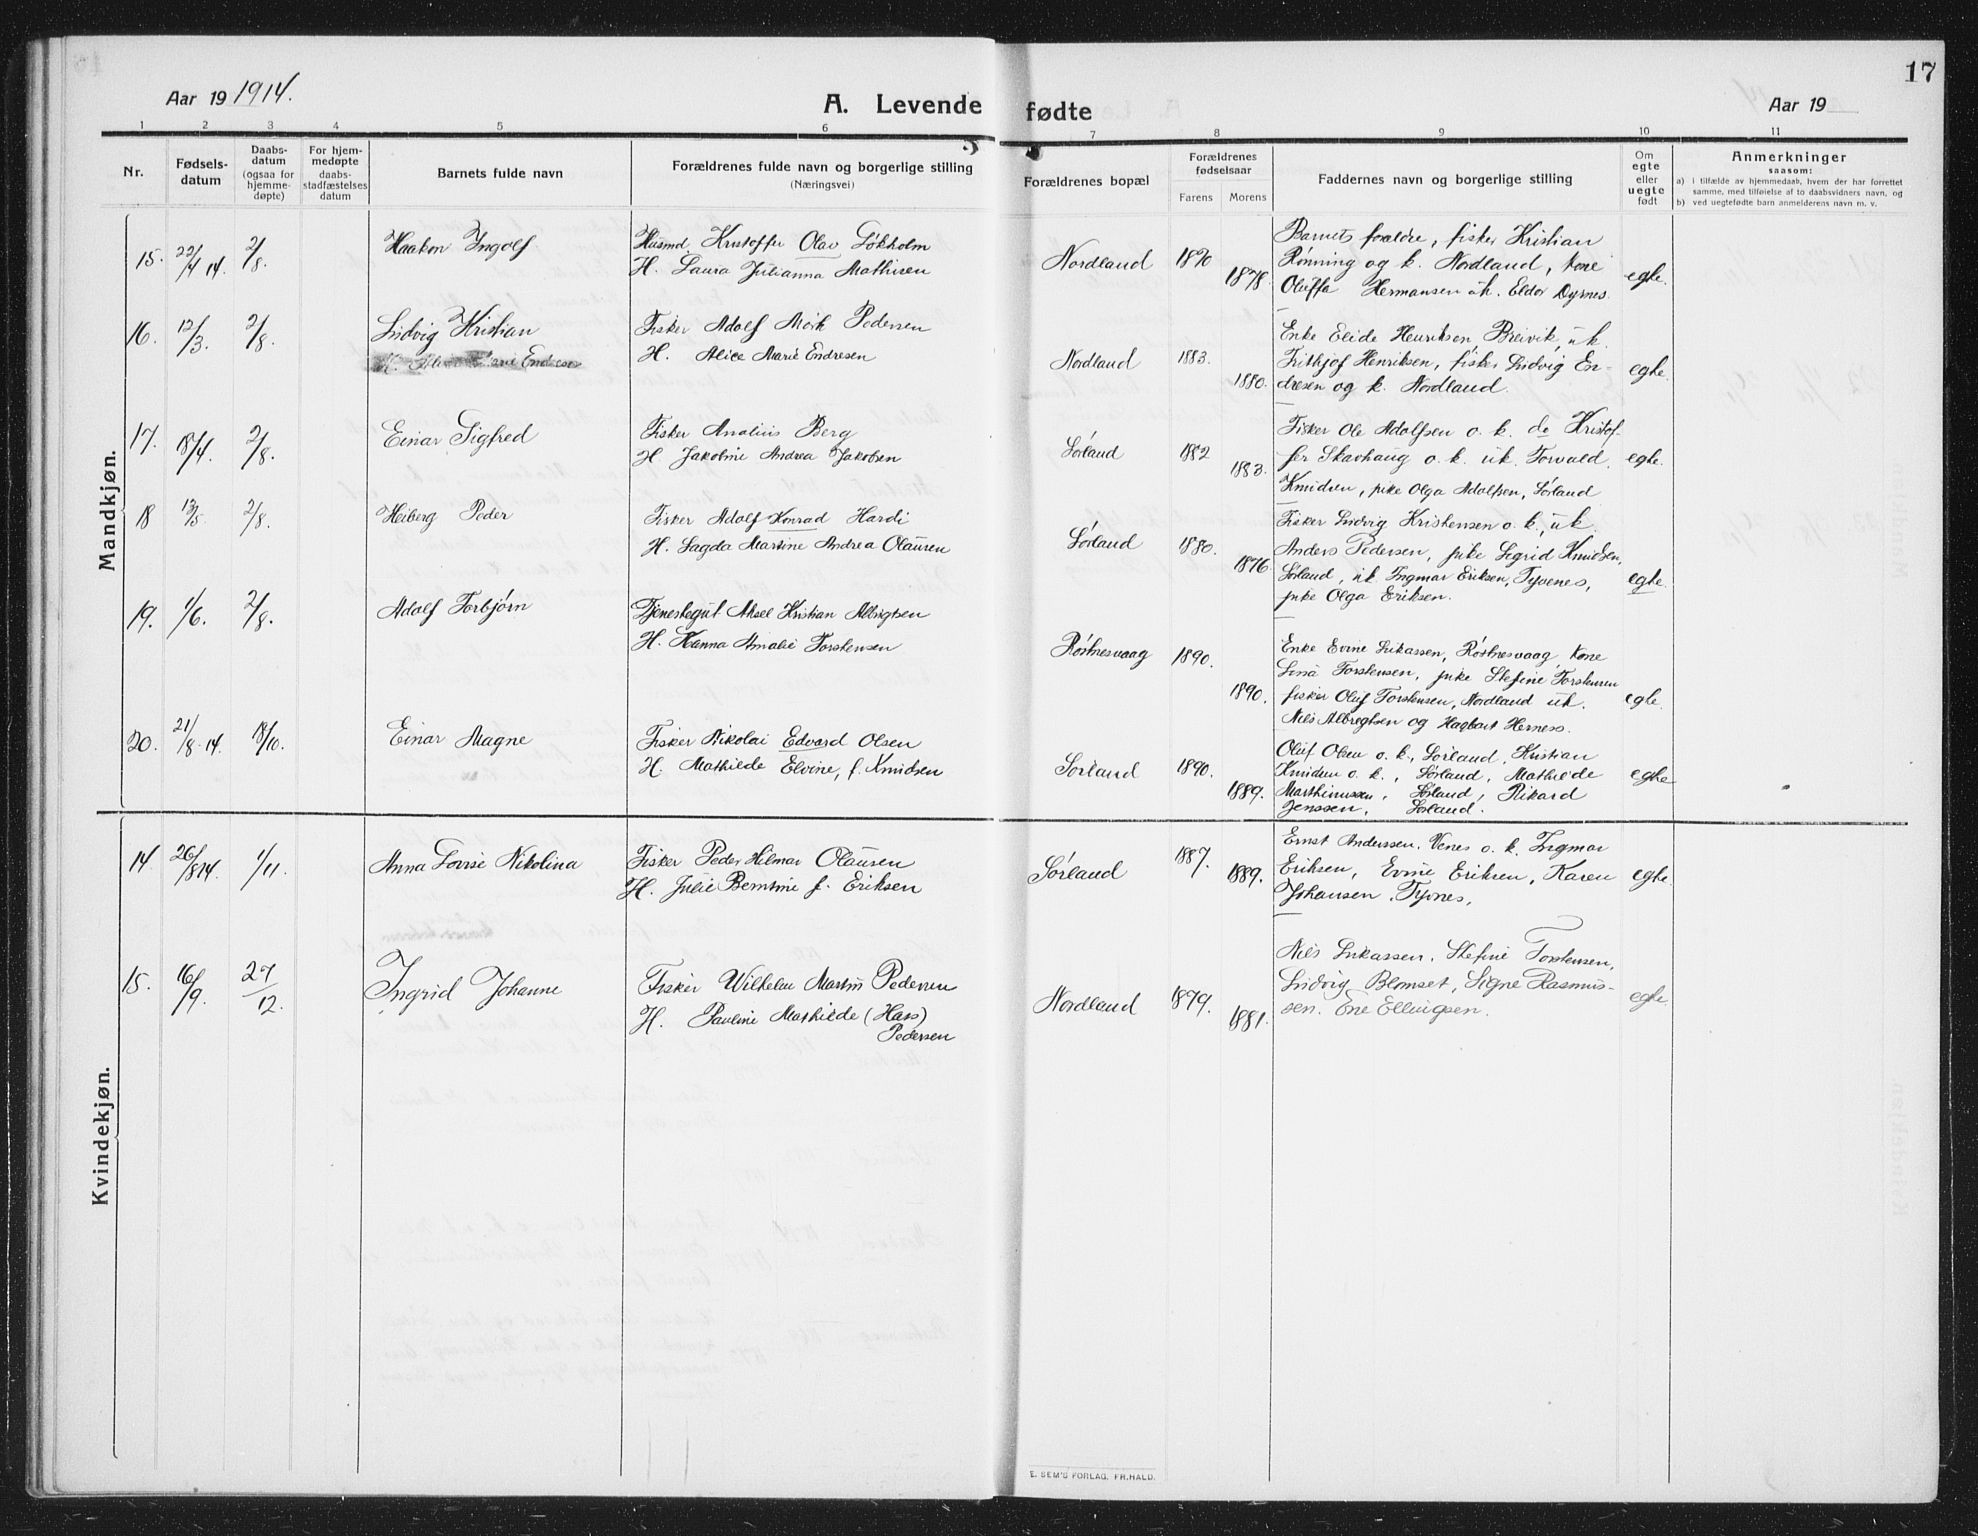 Aar 19 1914.
A. Levende fødte
Aar 19
17
1 2 3 4 5 6 7 8 9 10 11
Nr.
Fødsels-
datum
Daabs-
datum
(ogsaa for
hjemme-
døpte)
For hjem-
medøpte
daabs-
stadfæstelses
datum
Barnets fulde navn
Forældrenes fulde navn og borgerlige stilling
(Næringsvei)
Forældrenes bopæl
Forældrenes
fødselsaar
Farens Morens
Faddernes navn og borgerlige stilling
Om
egte
eller
uegte
født
Anmerkninger
saasom:
a) i tilfælde av hjemmedaab, hvem der har forrettet
samme, med tilføielse af to daabsvidners navn, og
b) ved uegtefødte barn anmelderens navn m. v.
Mandkjøn.
15. 22/4 14. 2/8. Haakon Ingolf
Husmd Kristoffer Olav Løkholm
H. Laura Julianna Mathisen
Nordland 1870 1878.
Barnets forældre, fisker Kristian
Rønning og k. Nordland, kone
Oluffa Hermansen uk. Eldor Dyrnes.
egte.
16. 12/3. 2/8. Ludvig Kristian
Fisker Adolf Mork Pedersen
H. Alice Marie Endresen
Nordland 1883. 1880.
Enke Elide Henriksen, Breivik, uk.
Frithjof Henriksen, fisker Ludvig En-
dresen og k. Nordland.
egte.
17. 18/4. 2/8. Einar Sigfred
Fisker Analius Berg
H. Jakobine Andrea Jakobsen
Sørland 1882 1883.
Fisker Ole Adolfsen o. k. do Kristof-
fer Skavhaug o. k. uk. Torvald
Knudsen, pike Olga Adolfsen, Sørland
egte.
18 13/5. 2/8. Heiberg Peder
Fisker Adolf Konrad Hardi
H. Lagda Martine Andrea Olausen
Sørland 1880. 1876.
Fisker Ludvig Kristensen o. k., uk.
Anders Pedersen, pike Sigrid Knudsen,
Sørland, uk Ingmar Eriksen, Tyvenes,
pike Olga Eriksen.
egte.
19. 1/6. 2/8. Adolf Torbjørn
Tjenestegut Aksel Kristian Albrigtsen
H. Hanna Amalie Torstensen
Røstnesvaag 1890. 1890.
Enke Evine Lukassen, Røstnesvaag, kone
Lina Torstensen, pike Stefine Torstensen
fisker Oluf Torstensen, Nordland uk.
Nils Albregtsen og Hagbart Herness.
egte.
20. 21/8. 14. 18/10. Einar Magne
Fisker Nikolai Edvard Olsen
H. Mathilde Elvine, f. Knudsen
Sørland 1890. 1889.
Oluf Olsen o. k., Sørland, Kristian
Knudsen o. k., Sørland, Mathilde
Marthinussen, Sørland, Rikard
Jenssen, Sørland.
egte
Kvindekjøn.
14. 26/8 14 1/11. Anna Lovise Nikolina
Fisker Peder Hilmar Olausen
H. Julie Berntine f. Eriksen
Sørland 1887. 1889.
Ernst Anderssen. Venes o. k. Ingmar
Eriksen, Evine Eriksen, Karen
Johansen. Tyvnes,
egte.
15. 16/9. 27/12. Ingrid Johanne
Fisker Wilhelm Martin Pedersen
H. Pauline Mathilde (Hass)
Pedersen
Nordland 1879. 1881.
Nils Lukassen. Stefine Torstensen,
Ludvig Blomset, Signe Rasmus-
sen. Ene Ellingsen.
egte.
E. SEM'S FORLAG, FR.HALD.